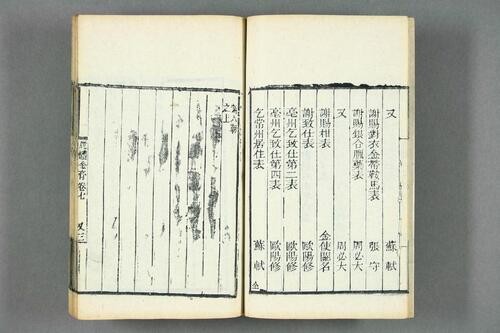 又 蘇軾
謝賜對衣金帶鞍馬表 張守
謝賜銀合臘藥表 周必大
又 周必大
謝賜柑表 金使闕名
謝致仕表 歐陽修
亳州乞致仕第二表 歐陽修
亳州乞致仕第四表 歐陽修
乞常州居住表 蘇軾
之上
卷七